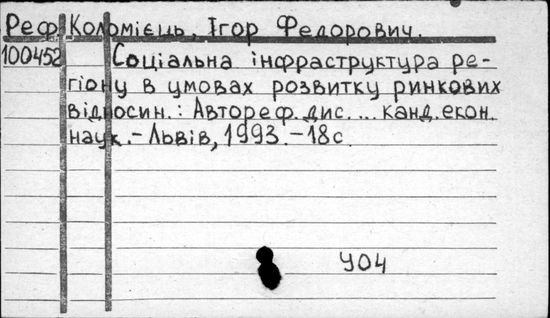 Реф Коломієць, Ігор Федорович.
100452 Соціальна інфраструктура ре-
гіону в умовах розвитку ринкових
відносин.: Автореф. дис. ... канд. екон.
наук. - Львів, 1993. - 18 с.
У04